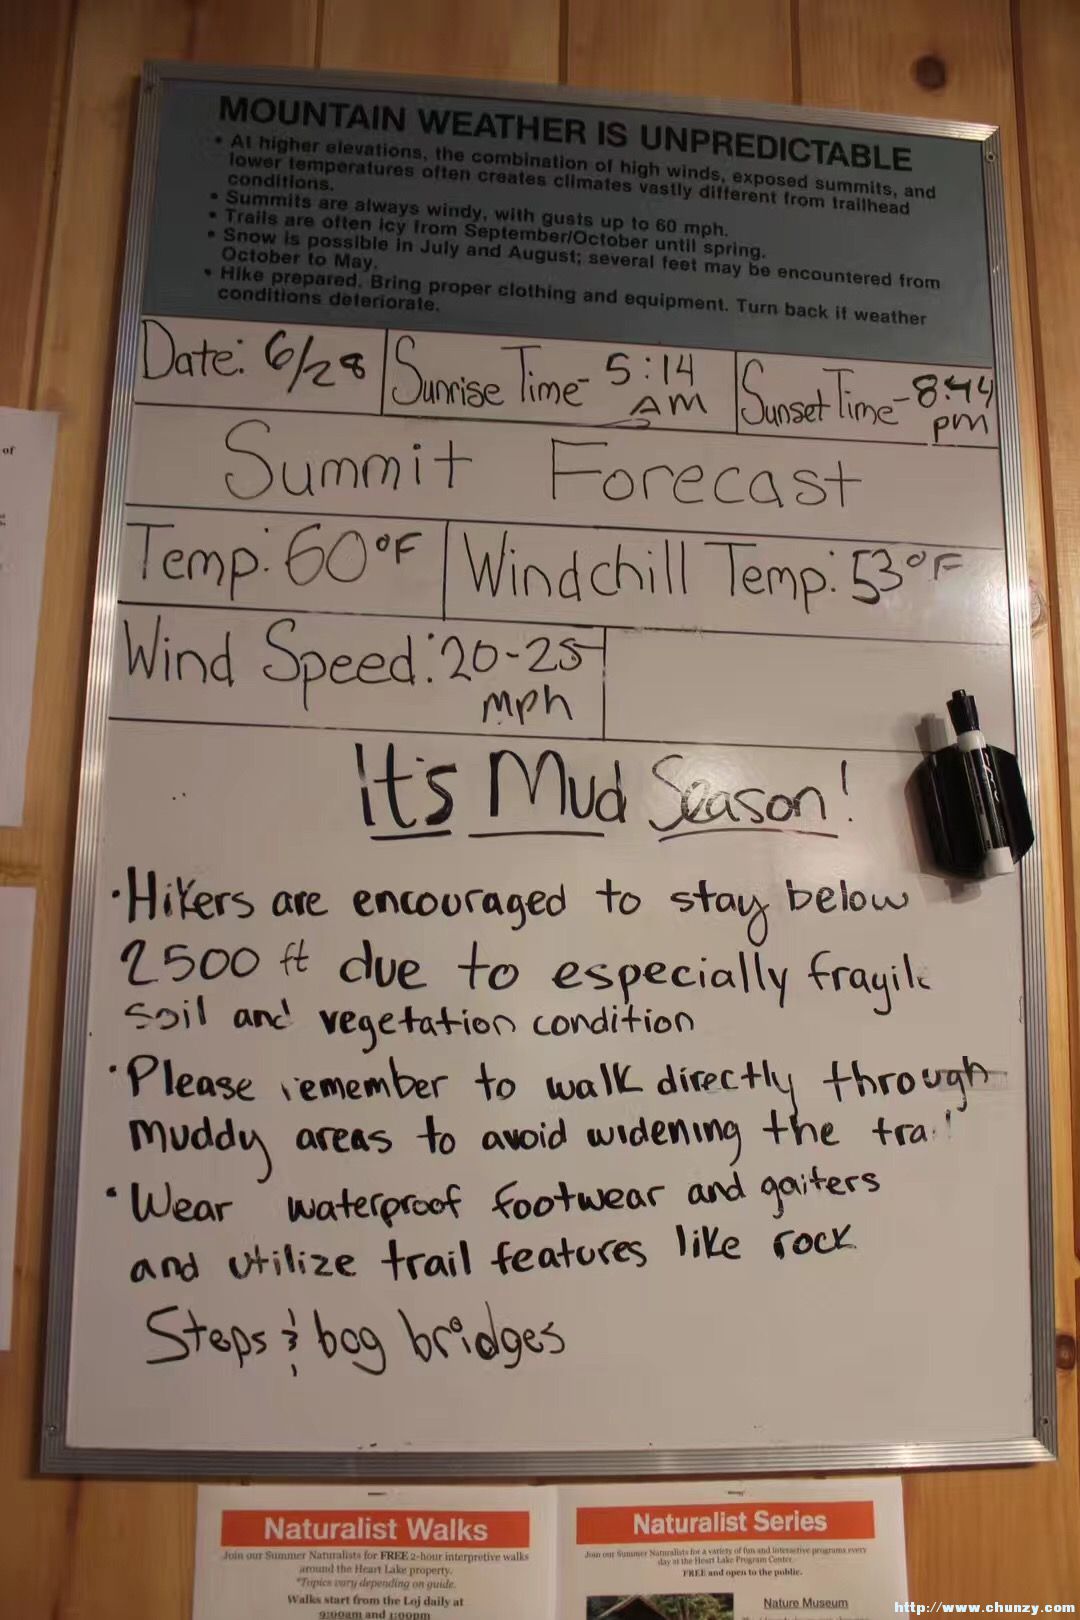 MOUNTAIN WEATHER IS UNPREDICTABLE
• At higher elevations, the combination of high winds, exposed summits, and
lower temperatures often creates climates vastly different from trailhead
conditions.
• Summits are always windy, with gusts up to 60 mph.
• Trails are often icy from September/October until spring.
• Snow is possible in July and August; several feet may be encountered from
October to May.
• Hike prepared. Bring proper clothing and equipment. Turn back if weather
conditions deteriorate.
Date: 6/28
Sunrise Time- 5:14
AM
Sunset Time- 8:44
pm
Summit Forecast
Temp: 60°F
Windchill Temp: 53°F
Wind Speed: 20-25
mph
It's Mud Season!
• Hikers are encouraged to stay below
2500 ft due to especially fragile
soil and vegetation condition
• Please remember to walk directly through
muddy areas to avoid widening the trail
• Wear waterproof footwear and gaiters
and utilize trail features like rock
Steps & bog bridges
of
Naturalist Walks
Join our Summer Naturalists for FREE 2-hour interpretive walks
around the Heart Lake property.
*Topics vary depending on guide.
Walks start from the Loj daily at
9:00am and 1:00pm
Naturalist Series
Join our Summer Naturalists for a variety of fun and interactive programs every
day at the Heart Lake Program Center.
FREE and open to the public.
Nature Museum
http://www.chunzy.com